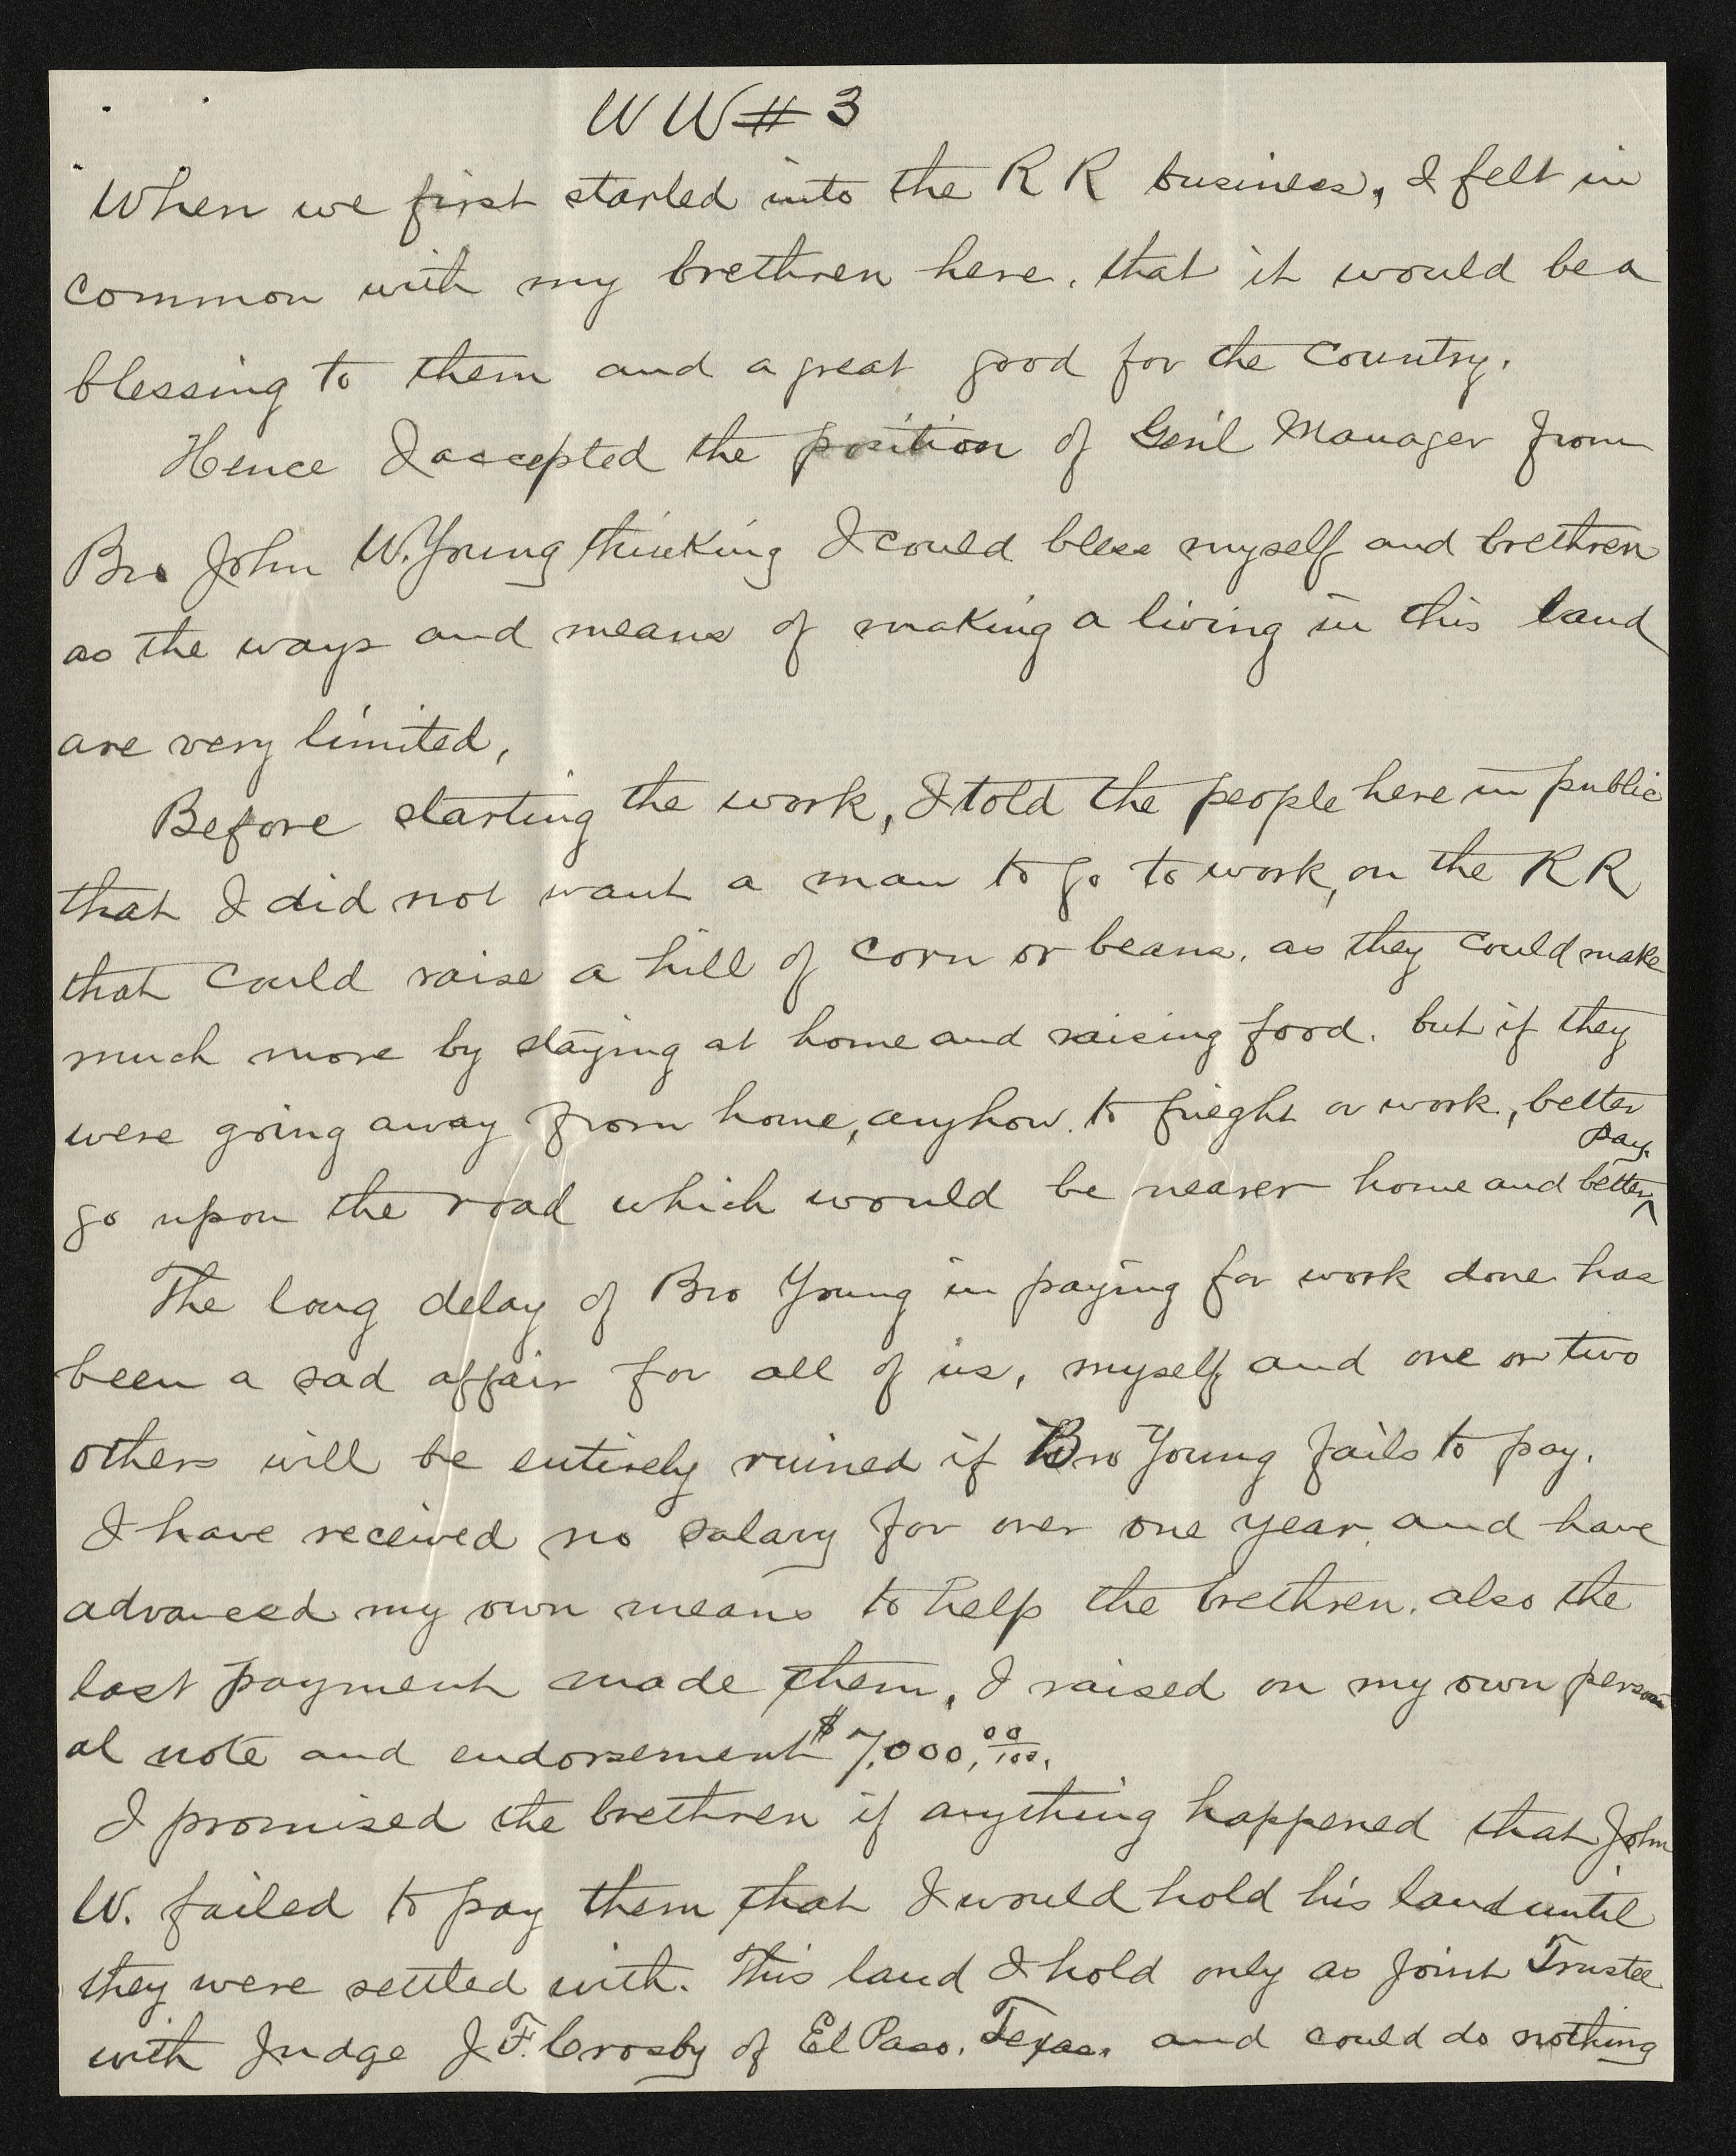 WW # 3
When we first started into the R R business, I felt in
common with my brethren here. that it would be a
blessing to them and a great good for the country.
Hence I accepted the position of Gen'l Manager from
Bro John W. Young thinking I could bless myself and brethren
as the ways and means of making a living in this land
are very limited,
Before starting the work, I told the people here in public
that I did not want a man to go to work, on the R R
that could raise a hill of corn or beans. as they could make
much more by staying at home and raising food. but if they
were going away from home, anyhow. to frieght or work, better
pay.
go upon the road which would be nearer home and better ^
The long delay of Bro Young in paying for work done has
been a sad affair for all of us, myself and one or two
others will be entirely ruined if Bro Young fails to pay.
I have received no salary for over one year and have
advanced my own means to help the brethren. also the
last payment made them, I raised on my own person
al note and endorsement $7,000,00/100.
I promised the brethren if anything happened that John
W. failed to pay them that I would hold his land until
they were settled with. This land I hold only as Joint Trustee
with Judge J. F. Crosby of El Paso. Texas. and could do nothing